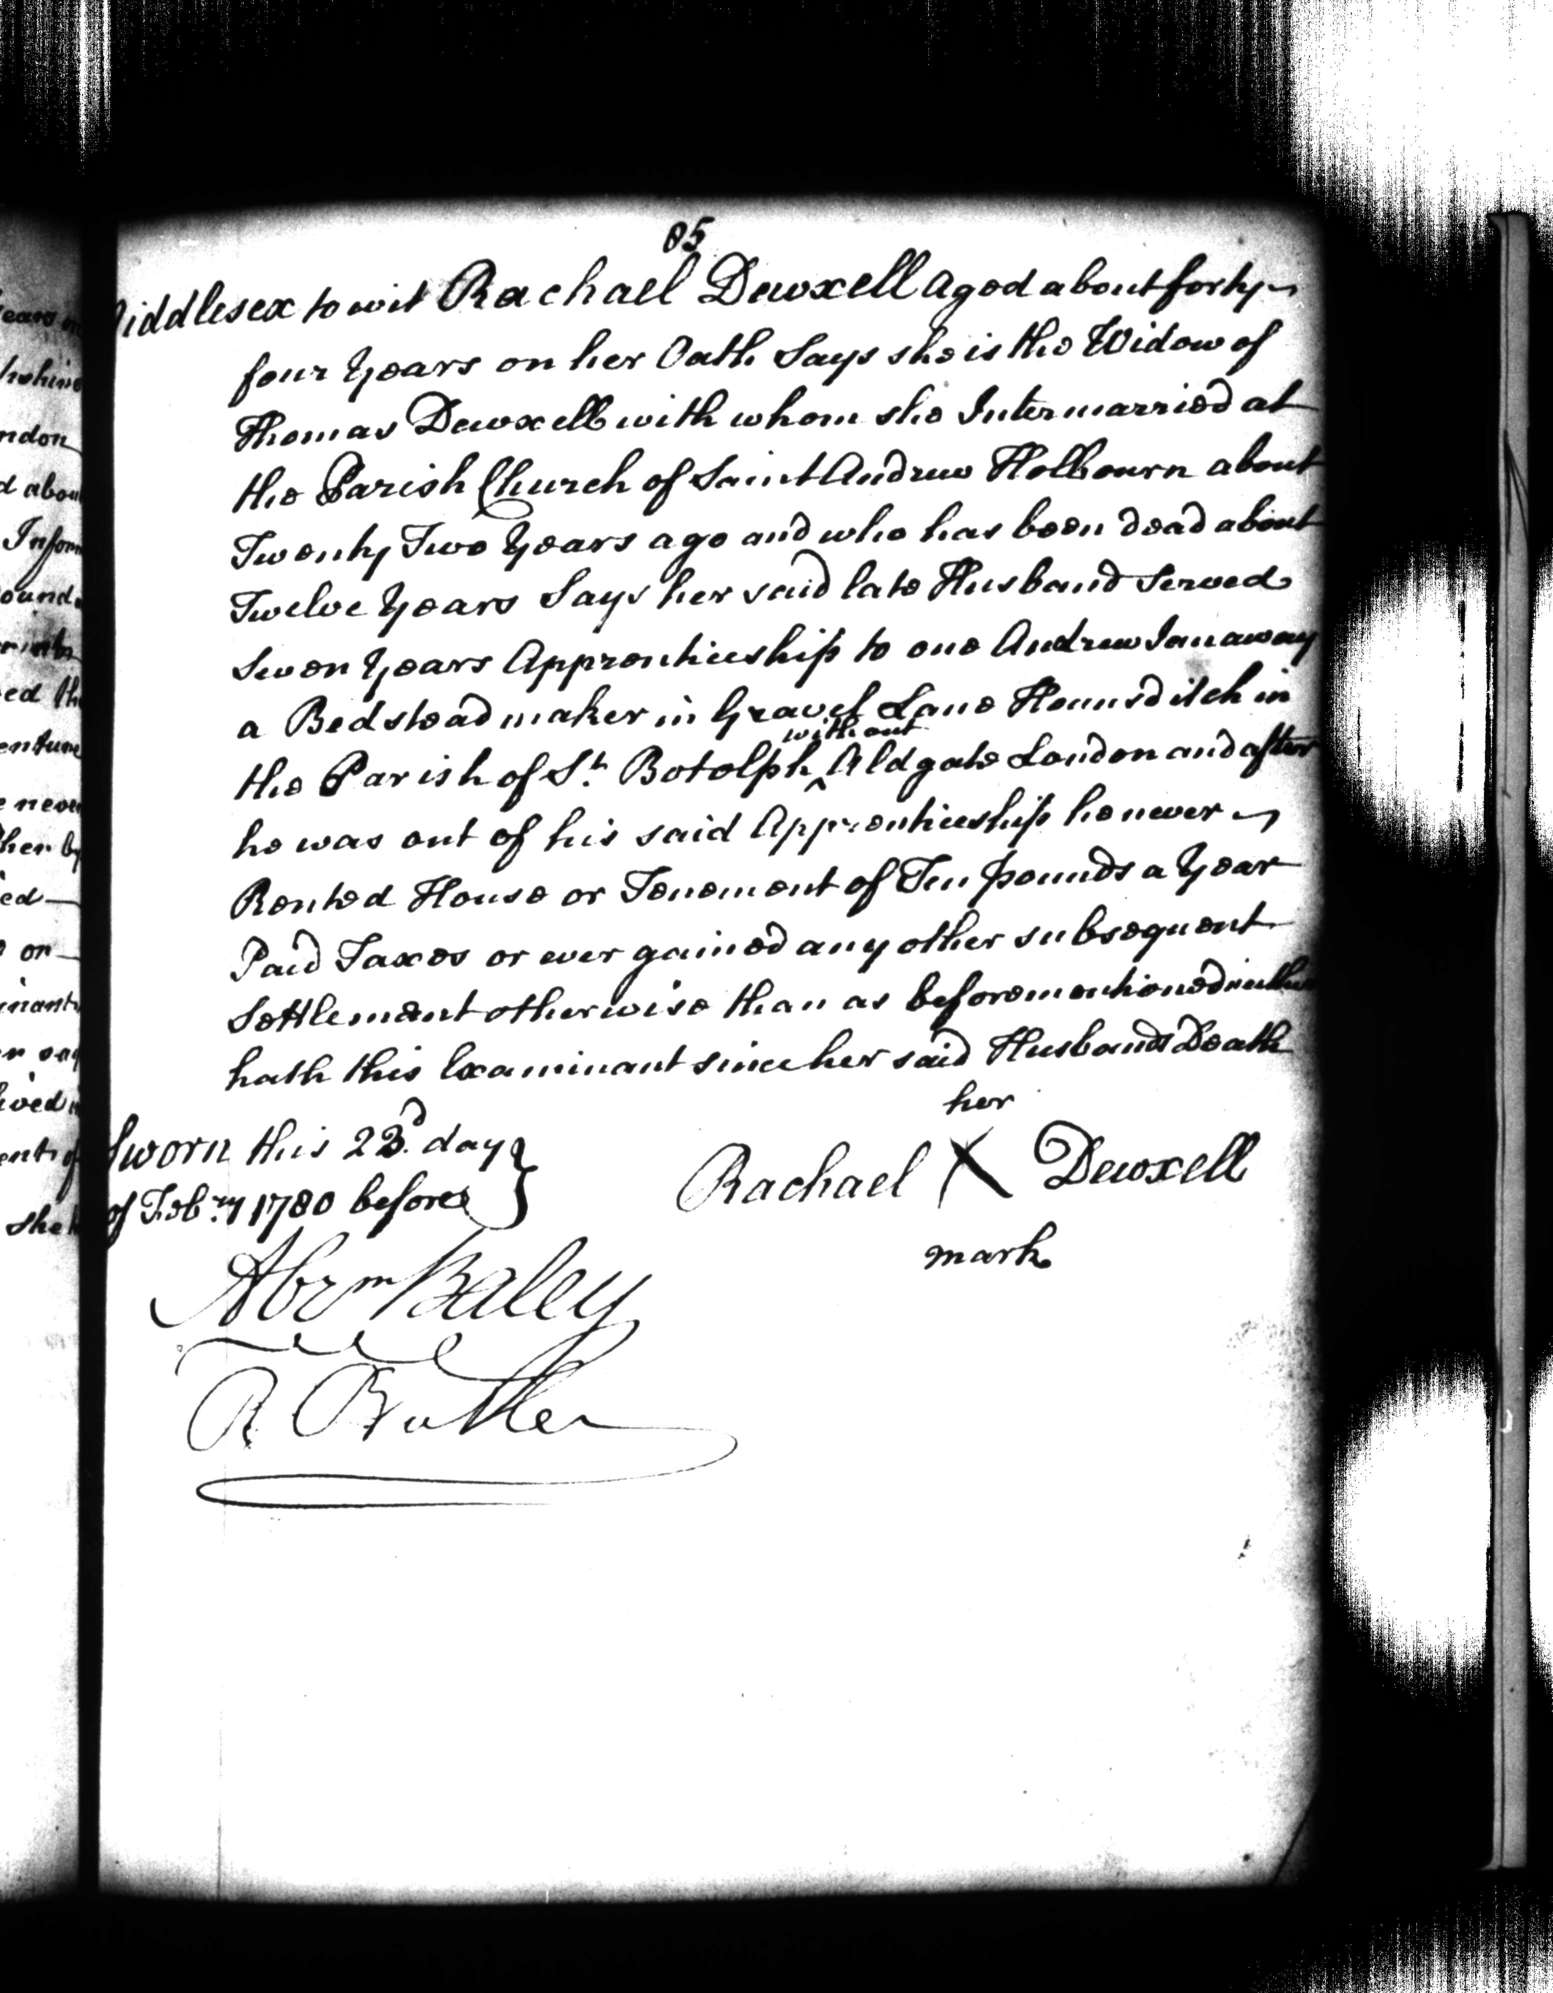 85
Middlesex to wit Rachael Dewxell aged about forty
four Years on her Oath Says she is the Widow of
Thomas Dewxell with whom she Intermarried at
the Parish Church of Saint Andrew Holbourn about
Twenty Two Years ago and who has been dead about
Twelve Years Says her said late Husband Served
Seven Years Apprenticeship to one Andrew Janaway
a Bedstead maker in Gravel Lane Hounsditch in
the Parish of St. Botolph ^without Aldgate London and after
he was out of his said Apprenticeship he never
Rented House or Tenement of Ten pounds a Year
Paid Taxes or ever gained any other subsequent
Settlement otherwise than as beforementioned neither
hath this Examinant since her said Husbands Death
Sworn this 23d. day
of Feb:ry 1780 before
her
Rachael X Dewxell
mark
Abrm Baley
R Butler
ears
ndon
d abou
Inform
ound
ed th
enture
e never
her by
ed
or
inant
ived
ent of
she